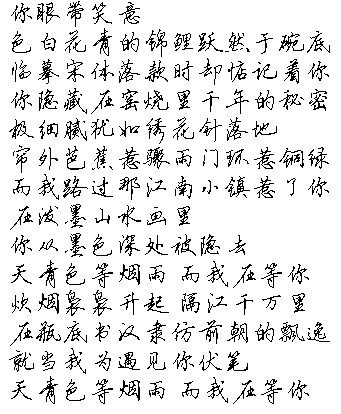 你眼带笑意
色白花青的锦鲤跃然于碗底
临摹宋体落款时却惦记着你
你隐藏在窑烧里千年的秘密
极细腻犹如绣花针落地
帘外芭蕉惹骤雨门环惹铜绿
而我路过那江南小镇惹了你
在泼墨山水画里
你从墨色深处被隐去
天青色等烟雨 而我在等你
炊烟袅袅升起 隔江千万里
在瓶底书汉隶仿前朝的飘逸
就当我为遇见你伏笔
天青色等烟雨 而我在等你